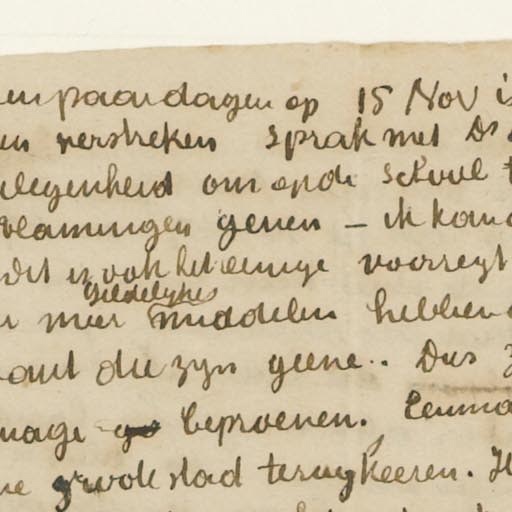 en paar dagen op 15 Nov is
en verstreken sprak met Ds
elegenheid om op de school
vlamingen geven - ik kan
dit is ook het eenige voorregt
geldelijke
meer middelen hebben
want die zyn geene.. Dus
mage beproeven. Eenma
groote stad terugkeeren. H